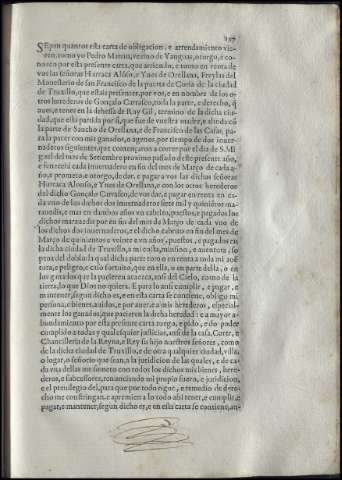 197
SEpan quantos esta carta de obligacion, e arrendamiento vie-
ren, como yo Pedro Martin, vezino de Yanguas, otorgo, e co-
nozco por esta presente carta, que arriendo, e tomo en renta de
vos las señoras Hurraca Alfon, e Ynes de Orellana, Freylas del
Monesterio de san Francisco de la puerta de Coria de la ciudad
de Truxillo, que estais presentes, por vos, e en nombre de los o-
tros herederos de Gonçalo Carrasco, toda la parte, e derecho, q̃
aueis, e tener en la dehessa de Ruy Gil, termino de la dicha ciu-
dad, que està partida por si, que fue de vuestra madre, e alinda cõ
la parte de Sancho de Orellana, e de Francisco de las Casas, pa-
ra la pacer con mis ganados, e agenos, por tiempo de dos inuer-
naderos siguientes, que començaron a correr por el dia de S. Mi
guel del mes de Setiembre proximo passado deste presente año,
e fenecerà cada inuernadero en fin del mes de Março de cada a-
ño, e prometo, e otorgo, de dar, e pagar a vos las dichas señoras
Hurraca Alonso, e Ynes de Orellana, e con los otros herederos
del dicho Gonçalo Carrasco, de vos dar, e pagar en renta en ca-
da vno de los dichos dos inuernaderos siete mil y quinientos ma-
rauedis, e mas en dambos años vn cabrito, puestos, e pagados los
dichos marauedis por en fin del mes de Março de cada vno de
los dichos dos inuernaderos, e el dicho cabrito en fin del mes de
Março de quinientos e veinte e vn años, puestos, e pagados en
la dicha ciudad de Truxillo, a mi costa, mission, e auentura, so
pena del doblo, la qual dicha parte tomo en renta a toda mi auẽ
tura, e peligro, e caso fortuito, que en ella, o en parte della, o en
los ganados que la pacieren acaezca, ansi del Cielo, como de la
tierra, lo que Dios no quiera. E para lo ansi cumplir, e pagar, e
mantener, segun dicho es, e en esta carta se contiene, obligo mi
persona, e bienes, auidos, e por auer, e a mis herederos, especial-
mente los ganados, que pacieren la dicha heredad: e a mayor a-
bundamiento por esta presente carta ruego, e pido, e do poder
cumplido a todas y qualesquier justicias, ansi de la casa, Corte, e
Chancilleria de la Reyna, e Rey su hijo nuestros señores, como
de la dicha ciudad de Truxillo, e de otra qualquier ciudad, villa,
o lugar, o señorio que sean, a la jurisdicion de las quales, e de ca-
da vna dellas me someto con todos los dichos mis bienes, here-
deros, e sucessores, renunciando mi propio fuero, e jurisdicion,
e el preuilegio del, para que por todo rigor, e remedio de dere-
cho me constringan, e apremien a lo todo ansi tener, e cumplir, e
pagar, e mantener, segun dicho es, e en esta carta se contiene, an-